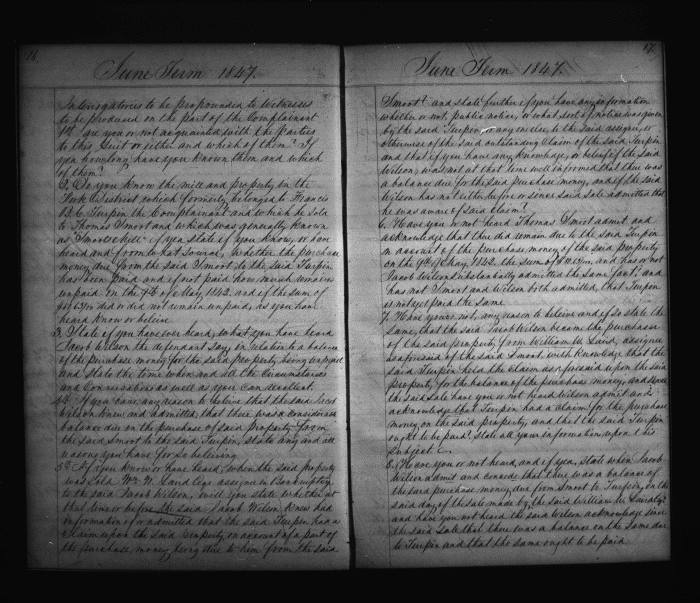 16.
June Term 1847.
Interrogatories to be propounded to witnesses
to be produced on the part of the Complainant
1st are you or not acquainted with the parties
to this Suit or either and which of them? If
yea how long have you known them and which
of them?
2. Do you know the mill and property in the
Fork District which formerly belonged to Francis
B. C. Turpin the Complainant and which he sold
to Thomas Smoot and which was generally known
as Smoots Mill: if yea state if you know, or have
heard and from what source, whether the purchase
money due from the said Smoot to the said Turpin
has been paid and if not paid how much remains
unpaid on the 9th of May 1842. and if the sum of
did or did not remain unpaid, as you have
heard know or believe
3. State if you have ever heard, what you have heard
Jacob Wilson the defendant say in relation to a balance
of the purchase money for the said property being unpaid
and State the time when and all the Circumstances
and Conversations as well as you can recollect.
4th. If you have any reason to believe that the said Jacob
Wilson knew and admitted, that there was a considerable
balance due on the purchase of said property from
the said Smoot to the said Turpin, state any and all
reasons you have for so believing
5th. If you know or have heard, when the said property
was Sold Wm. W. Laird assignee in Bankruptcy
to the said Jacob Wilson, will you state whether at
that time or before the said Jacob Wilson knew had
information of or admitted that the said Turpin had a
Claim upon the said property on account of a part of
the purchase money being due to him from the said
17.
June Term 1847.
Smoot? and state further if you have any information
whether or not, public notice, or what sort of notice was given
by the said Turpin or any one else to the said assignee, or
otherwise of the said outstanding Claim of the said Turpin
and that if you have any knowledge or belief if the said
Wilson, was not at that time well informed that there was
a balance due for the said purchase money, and if the said
Wilson has not either before or since said Sale admitted that
he was aware of said Claim?
6. Have you or not heard Thomas Smoot admit and
acknowledge that there did remain due to the said Turpin
on account of the purchase money of the said property
on the 9th of May 1842. the sum of and has or not
Jacob Wilson substantially admitted the same fact? and
has not Smoot and Wilson both admitted, that Turpin
is not yet paid the same.
7. Have you or not, any reason to believe and if so state the
same, that the said Jacob Wilson became the purchaser
of the said property from William W. Laird, assignee
as aforesaid of the said Smoot, with Knowledge that the
said Turpin held the claim as aforesaid upon the said
property for the balance of the purchase money, and since
the said Sale have you or not heard Wilson admit and
acknowledge that Turpin had a Claim for the purchase
money on the said property, and that the said Turpin
ought to be paid? State all your information upon this
subject.
8. Have you or not heard, and if yea, State when Jacob
Wilson admit and concede that there was a balance of
the said purchase money, due from Smoot to Turpin, on the
said day of the sale made by the said William W. Laird
and have you not heard the said Wilson acknowledge since
the said Sale that there was a balance on the Same due
to Turpin and that the same ought to be paid